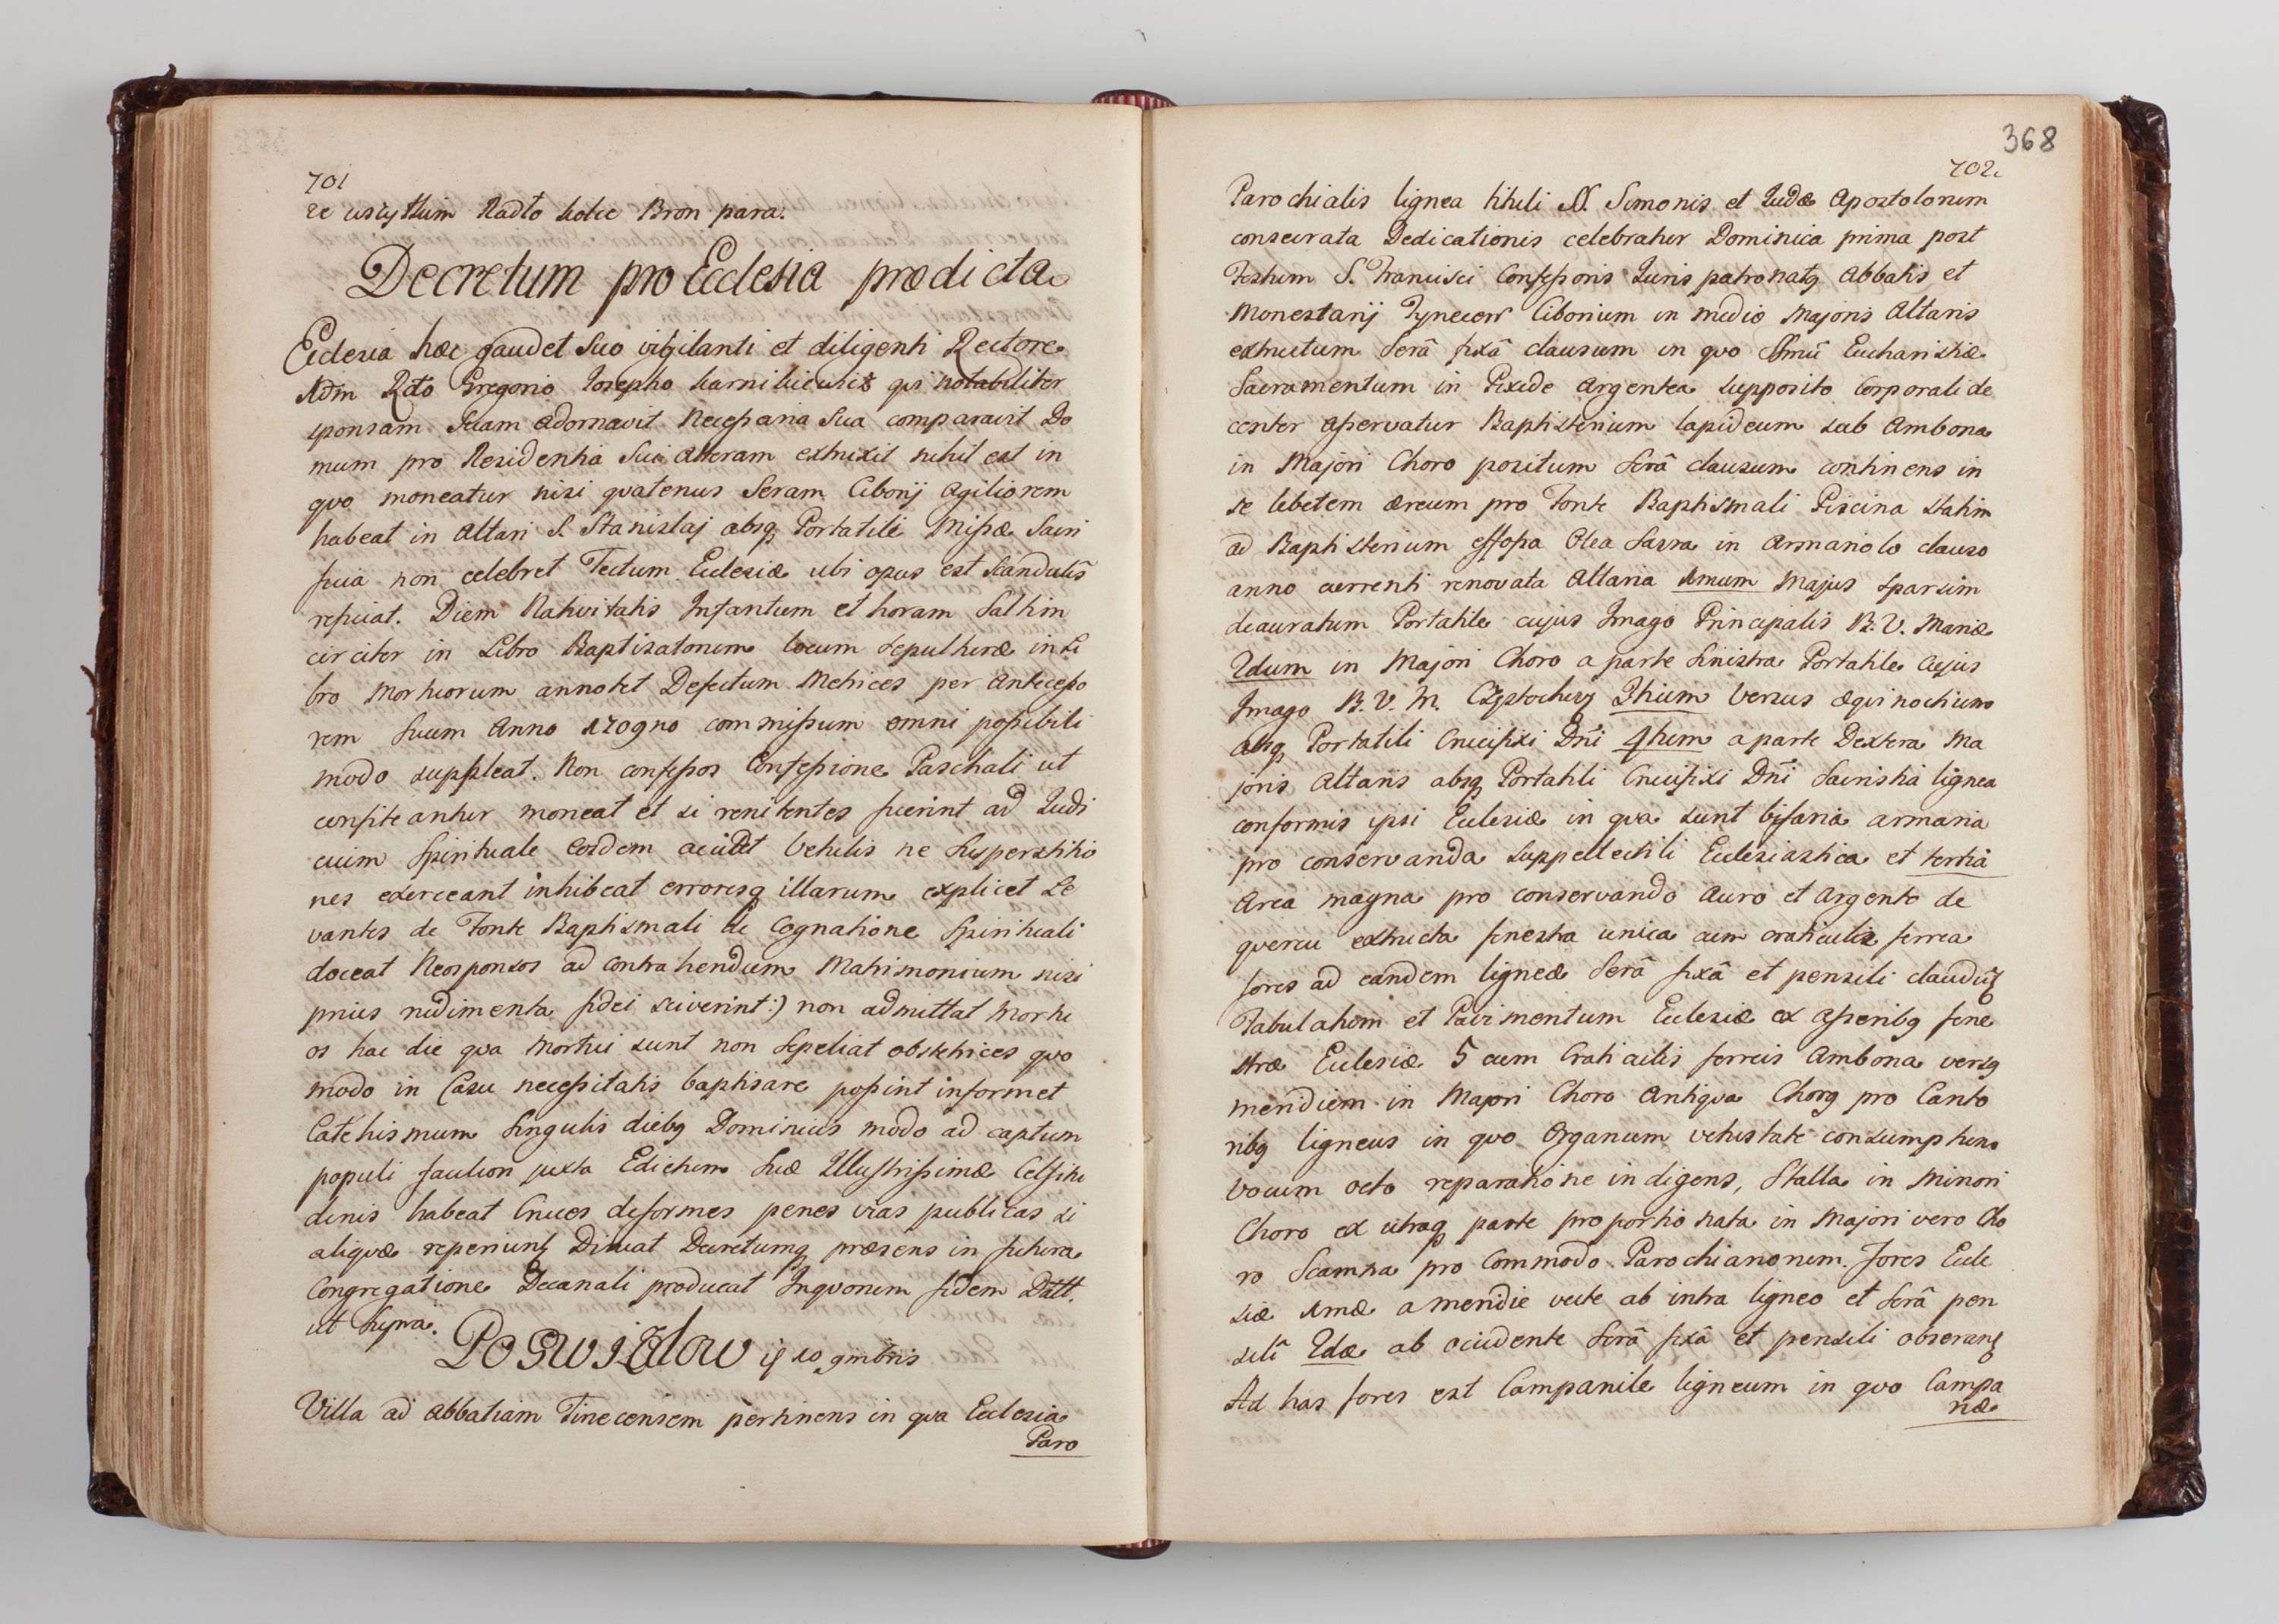 701
ze wszytkim Radło kolce Bron para.
Decretum pro Ecclesia prædicta
Ecclesia hæc gaudet suo vigilanti et diligenti Rectore
Adm Rdo Gregorio Josepho qui notabiliter
sponsam suam adornavit necessaria sua comparavit Do
mum pro Residentia sui alteram extruxit nihil est in
quo moneatur nisi quatenus seram Ciborij agiliorem
habeat in Altari S. Stanislaj absq Portatili Missæ Sacri
ficia non celebret Tectum Ecclesiæ ubi opus est scandulis
reficiat. Diem Nativitatis Infantum et horam saltim
circiter in Libro Baptisatorum locum sepulturæ in Li
bro Mortuorum annotet Defectum Metrices per Antecesso
rem suum Anno 1709no commissum omni possibili
modo suppleat. Non confessos Confessione Paschali ut
confiteantur moneat et si renitentes fuerint ad Judi
cium Spirituale eosdem Vetulis ne superstitio
nes exerceant inhibeat erroresq illarum explicet Le
vantes de Fonte Baptismali de Cognatione Spirituali
doceat Neosponsos ad contrahendum Matrimonium nisi
prius rudimenta fidei sciverint:) non admittat Mortu
os hac die qua Mortui sunt non sepeliat obstetrices quo
modo in Casu necessitatis baptisare possint informet
Catehismum singulis diebq Dominicis modo ad captum
populi juxta Edictum suæ Illustrissimæ Celsitu
dinis habeat Cruces deformes penes vias publicas si
aliquæ reperiunt Diruat Decretumq præsens in futura
Congregatione Decanali producat Inquorum fidem Datt.
ut supra.
Poswizdow 10 gmbris
Villa ad Abbatiam Tinecensem pertinens in qua Ecclesia
Paro
368
702
Parochialis lignea tituli SS. Simonis et Judæ Apostolorum
consecrata Dedicationis celebratur Dominica prima post
Festum S. Francisci Confessoris Juris patronatq Abbatis et
Monestarij Tynecen Cibonium in medio Majoris Altaris
extructum serâ fixâ clausum in quo SSmũ Eucharistiæ
Sacramentum in Pixide Argentea supposito Corporali de
center asservatur Baptisterium lapideum sub Ambona
in Majori Choro positum serâ clausum continens in
se lebetem æreum pro Fonte Baptismali Piscina statim
ad Baptisterium effossa Olea Sacra in armariolo clauso
anno currenti renovata Altaria 1mum Majus sparsim
deauratum Portatile cujus Imago Principalis B. V. Mariæ
2dum in Majori Choro a parte sinistra Portatile cujus
Imago B. V. M. 3tium versus æquinoctium
absq Portatili Crucifixi Dñi 4tum a parte Dextera Ma
joris Altaris absq Portatili Crucifixi Dñi Sacristia lignea
conformis ipsi Ecclesiæ in qua sunt bifaria armaria
pro conservanda suppellectili Ecclesiastica et tertia
Arca magna pro conservando Auro et Argento de
quercu extructa finestra unica cum craticulis ferrea
fores ad eandem ligneæ serâ fixâ et pensili claudũt
Tabulatum et Pavimentum Ecclesiæ ex asseribq fene
stræ Ecclesiæ 5 cum Craticulis ferreis Ambona versq
meridiem in Majori Choro Antiqua Chorq pro Canto
ribq ligneus in quo Organum vetustate consumptum
vocum octo reparatione indigens, Stalla in Minori
Choro ex utraq parte proportionata in Majori vero Cho
ro Scamna pro Commodo Parochianorum. Fores Eccle
siæ 1mæ a meridie vecte ab intra ligneo et serâ pen
sili 2dæ ab occidente serâ fixâ et pensili obserant
Ad has fores est Campanile ligneum in quo Campa
næ